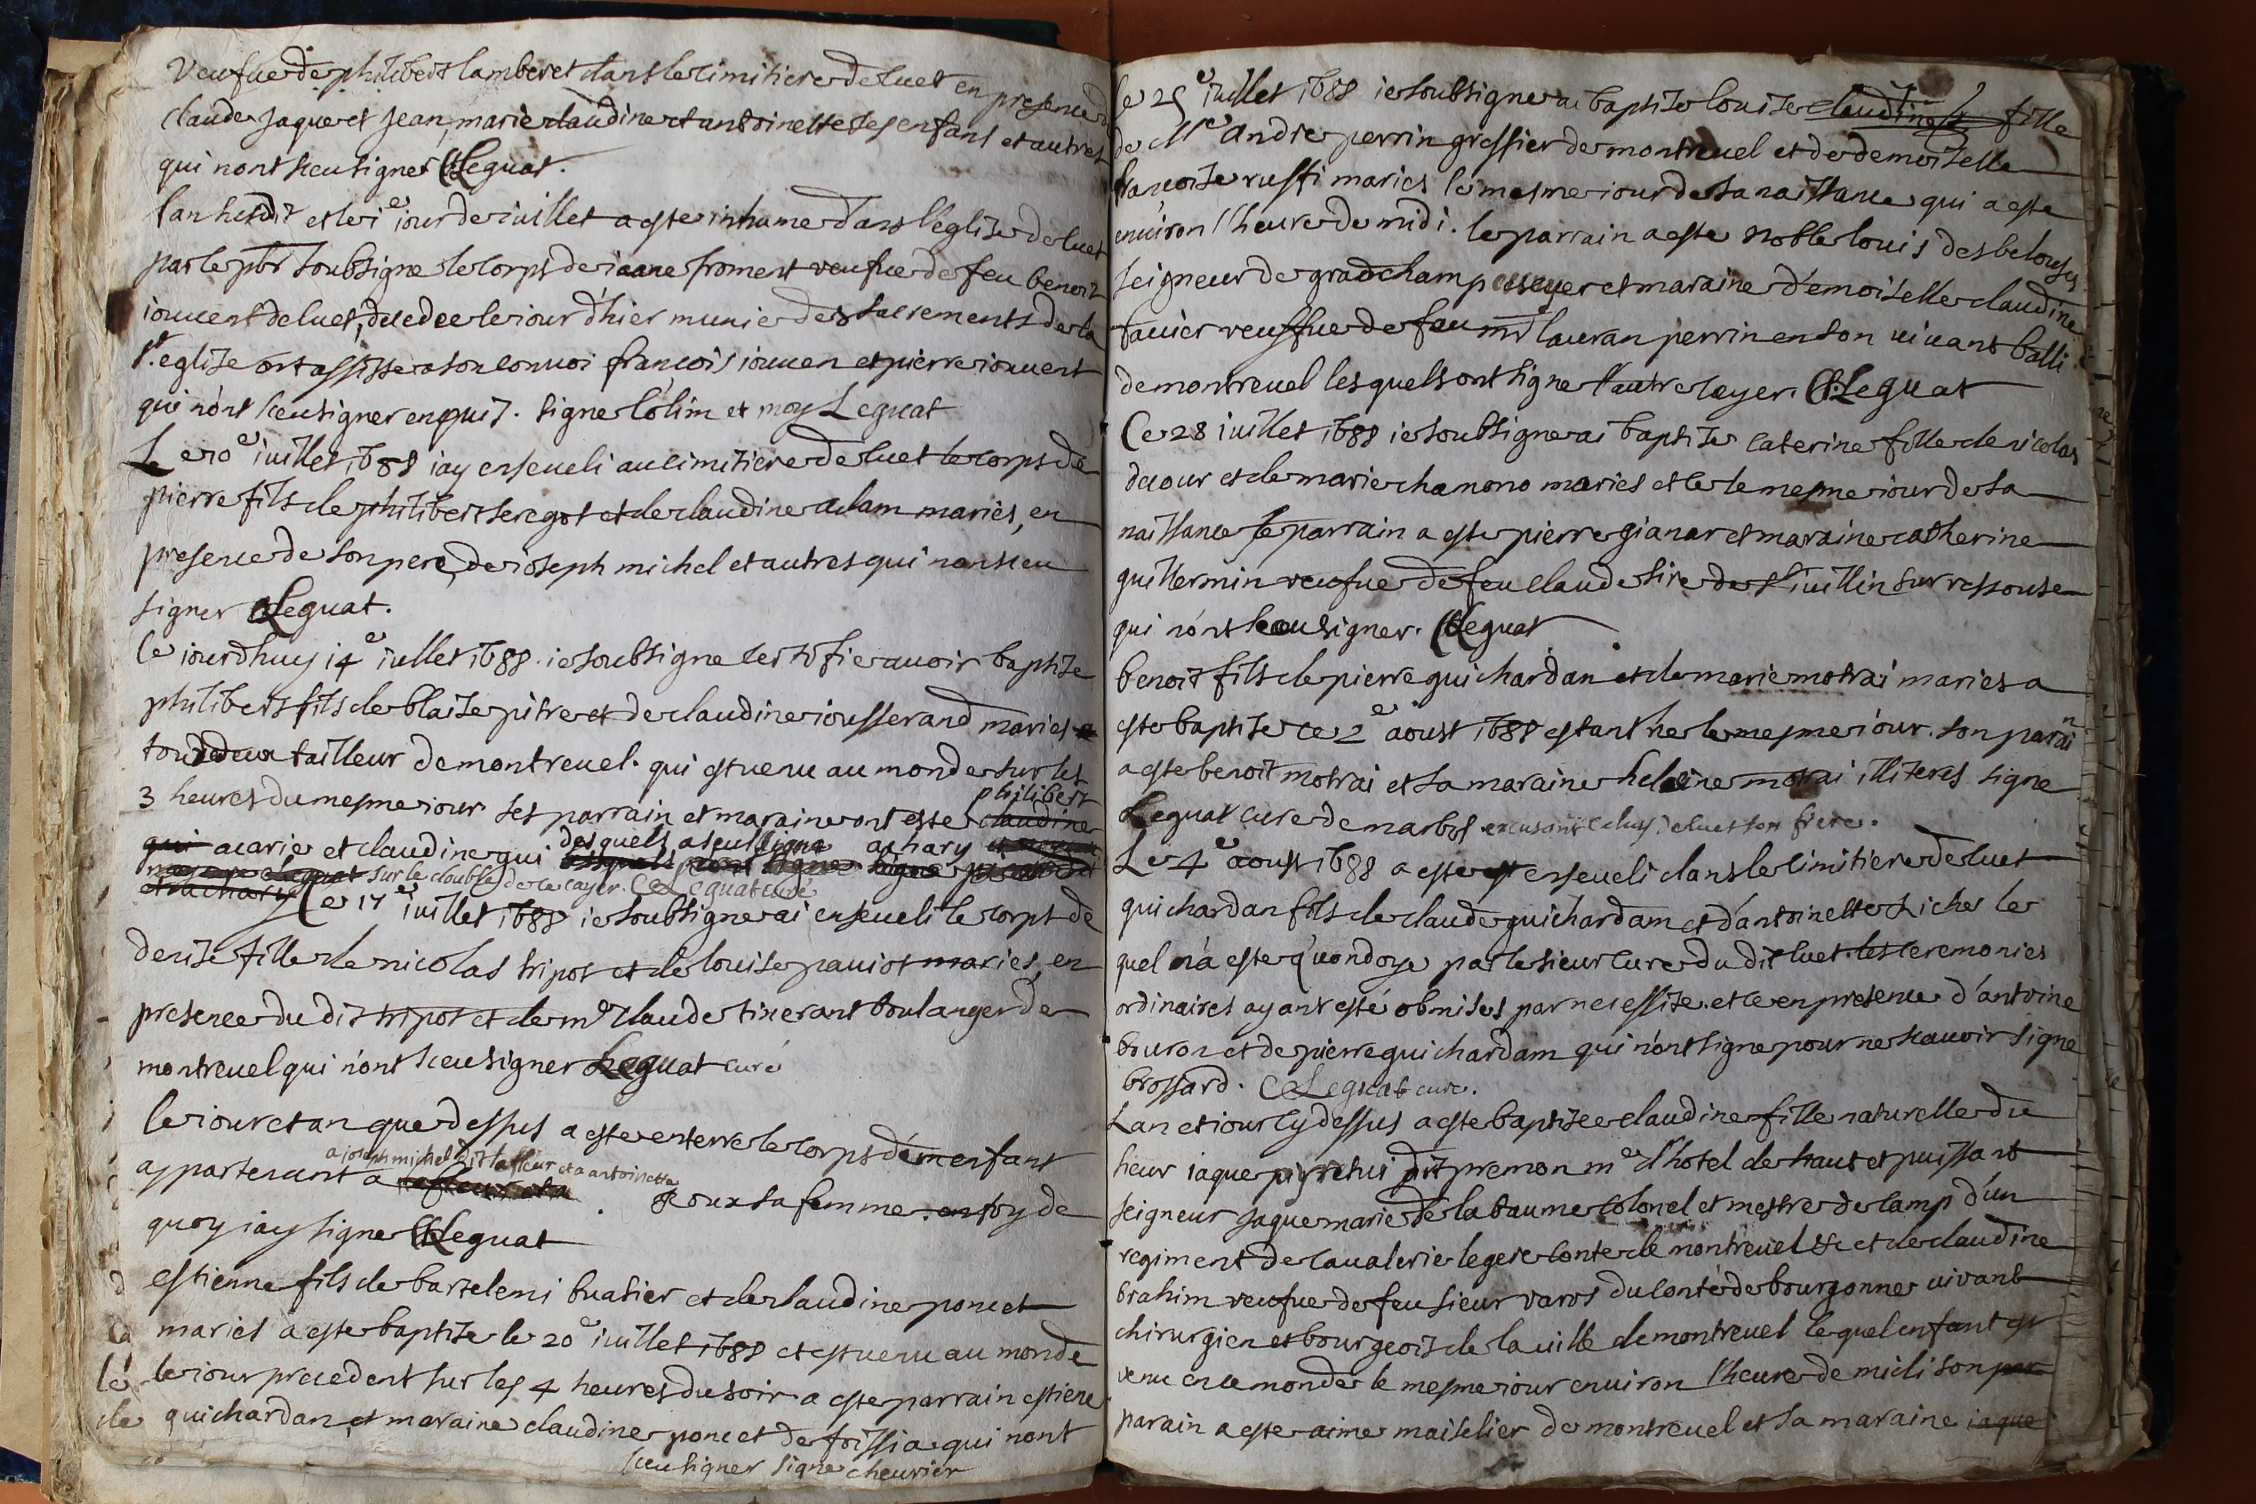 Veufue de philibert lamberet dans le cimitiere de luet en presence d
claude jaque et jean, marie claudine et antoinette ses enfans et autres
qui nont sceu signer Leguat.
lan susdit et le i e iour de iuillet a este inhume dans l'eglise de luet
par le pbr soubsigne le corps de ieane froment veufue de feu benoit
iouuent de luet, decedee le iour d'hier munie des sacrements de la
s. eglise ont assisté a son conuoi françois iouuen et pierre iouuent
qui n'ont sceu signer enquis. signe Colim et moy Leguat
Le 10 e iuillet 1688 iay enseueli au cimitiere de luet le corps de
pierre fils de philibert seregot et de claudine adam mariés, en
presence de son pere, de ioseph michel et autres qui nont sceu
signer Leguat.
Ce iourdhuy 14 e iullet 1688. ie soubsigne certifie auoir baptise
philibert fils de blaise pitre et de claudine iousserand maries
tou deux tailleur de montreuel. qui est venu au monde sur les
3 heures du mesme iour ses parrain et maraine ont esté claudine philibert
qui acarie et claudine qui desquels a seul signe achary
sur le double de ce cayer. Leguat curé
Ce 17 e iuillet 1688 ie soubsigne ai enseueli le corps de
denise fille de nicolas tripot et de louise pauiot maries, en
presence du dit tripot et de me claude tinerant boulanger de
montreuel qui n'ont sceu signer Leguat curé
le iour et an que dessus a este enterre le corps d'un enfant
appartenant a a joseph michel dit lafleur et a antoinette
roux sa femme. en foy de
quoy iay signe Leguat
estienne fils de bartelemi buatier et de claudine poncet
maries a este baptise le 20 e iuillet 1688 et est venu au monde
le iour precedent sur les 4 heures du soir a este parrain estiene
quichardan, et maraine claudine poncet de foissia qui nont
sceu signer signe cheurier
le 25 e iuillet 1688 ie soubsigne ai baptise louise claudine fille
de Me andre perrin greffier de montreuel et de demoiselle
françoise ruffi maries le mesme iour de sa naissance qui a este
enuiron l'heure de midi. le parrain a este noble louis des belouses
seigneur de gradchamp escuyer et maraine d'emoiselle claudine
fauier veuffue de feu mr lauran perrin en son viuant balli
de montreuel lesquels ont signe l'autre cayer. Leguat
Ce 28 iuillet 1688 ie soubsigne ai baptise caterine fille de nicolas
dacour et de marie chanono maries et ce le mesme iour de sa
naissance le parrain a este pierre gianar et maraine catherine
guillermin veufue de feu claude sire de st iullin sur ressouse
qui n'ont sceu signer. Leguat
benoit fils de pierre guichardan et de marie motrai maries a
este baptise ce 2 e aoust 1688 estant ne le mesme iour. son parain
a este benoit motrai et sa maraine heleine motrai illiteres signe
Leguat cure de marbos excusant celuy de luet son frere.
Le 4 e aoust 1688 a este enseueli dans le cimitiere de luet
quichardan fils de claude guichardam et d'antoinette richer le
quel n'a este qu'ondoye par le sieur cure du dit luet. les ceremonies
ordinaires ayant esté obmises par necessite. et ce en presence d'antoine
bouron et de pierre guichardam qui n'ont signe pour ne scauoir signe
brossard. Leguat cure.
Lan et iour cy dessus a este baptisee claudine fille naturelle du
sieur iaque dit premon me d'hotel de haut et puissant
seigneur jaque marie de la baume colonel et mestre de camp d'un
regiment de caualerie legere conte de montreuel &c et de claudine
brahim veufue de feu sieur varos du conté de bourgonne viuant
chirurgien et bourgeois de la uille de montreuel lequel enfant est
venu en ce monde le mesme iour enuiron l'heure de midi son par
parain a este aime maiselier de montreuel et sa maraine iaque